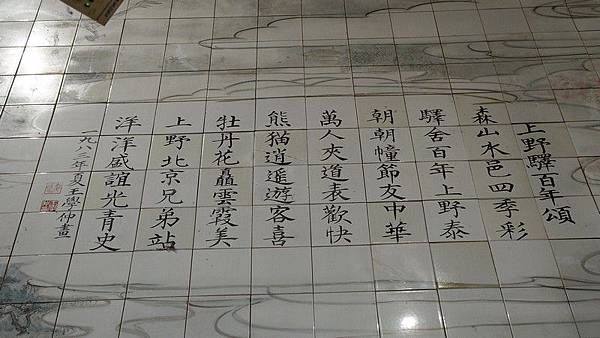 上野驛百年頌
森山水邑四季彩
驛舍百年上野泰
朝朝幢節友中華
萬人夾道表歡快
熊猫逍遥遊客喜
牡丹花矗雲霞美
上野北京兄弟站
洋洋盛誼光青史
一九八三年夏王學仲畫